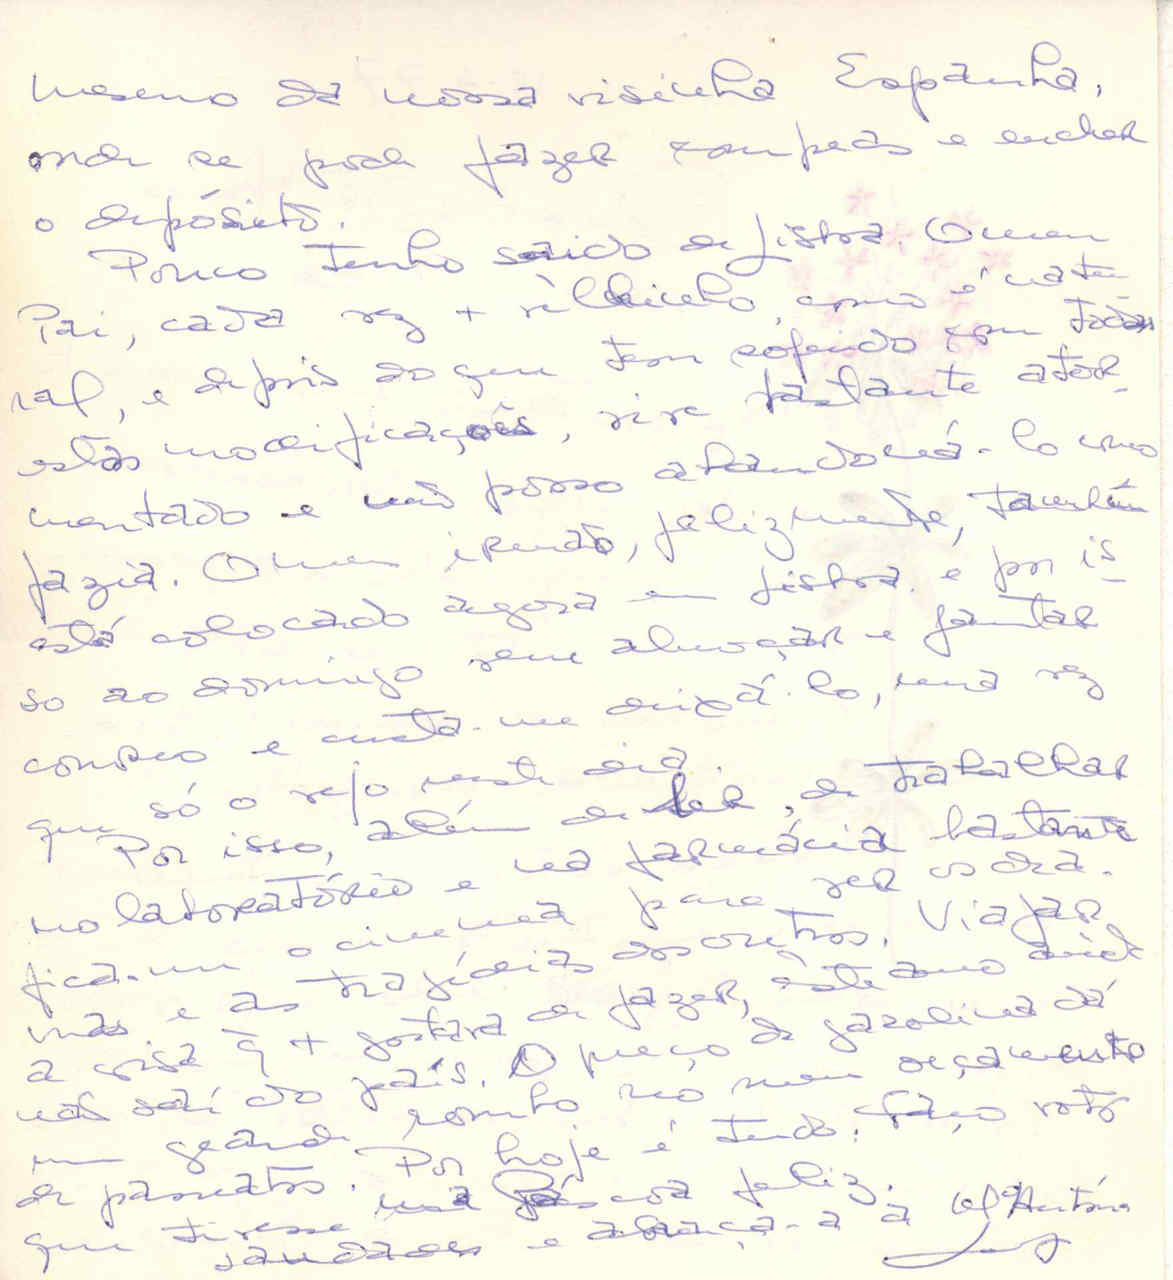 mesmo da nossa visinha Espanha,
onde se pode fazer compras e encher
o depósito.
Pouco tenho saido de Lisboa. O meu
Pai, cada vez + vèlhinho, como é natu
ral, e depois do que tem sofrido com todas
estas modificações, vive bastante ator-
mentado e não posso abandoná-lo como
fazia. O meu irmão, felizmente, também
está colocado agora em Lisboa. e por is-
so ao domingo vem almoçar e jantar
comigo e custa-me deixá-lo, uma vez
que só o vejo neste dia.
Por isso, além de ler, de trabalhar
no laboratório e na farmácia bastante
fica-me o cinema para ver os dra-
mas e as tragédias dos outros. Viajar,
a coisa q̃ + gostava de fazer, êste ano ainda
não saí do país. O preço da gazolina dá
um grande rombo no meu orçamento
de passeatas. Por hoje é tudo. Faço votos
que tivesse uma Páscoa feliz.
saudades e abraça-a a Mª Antónia